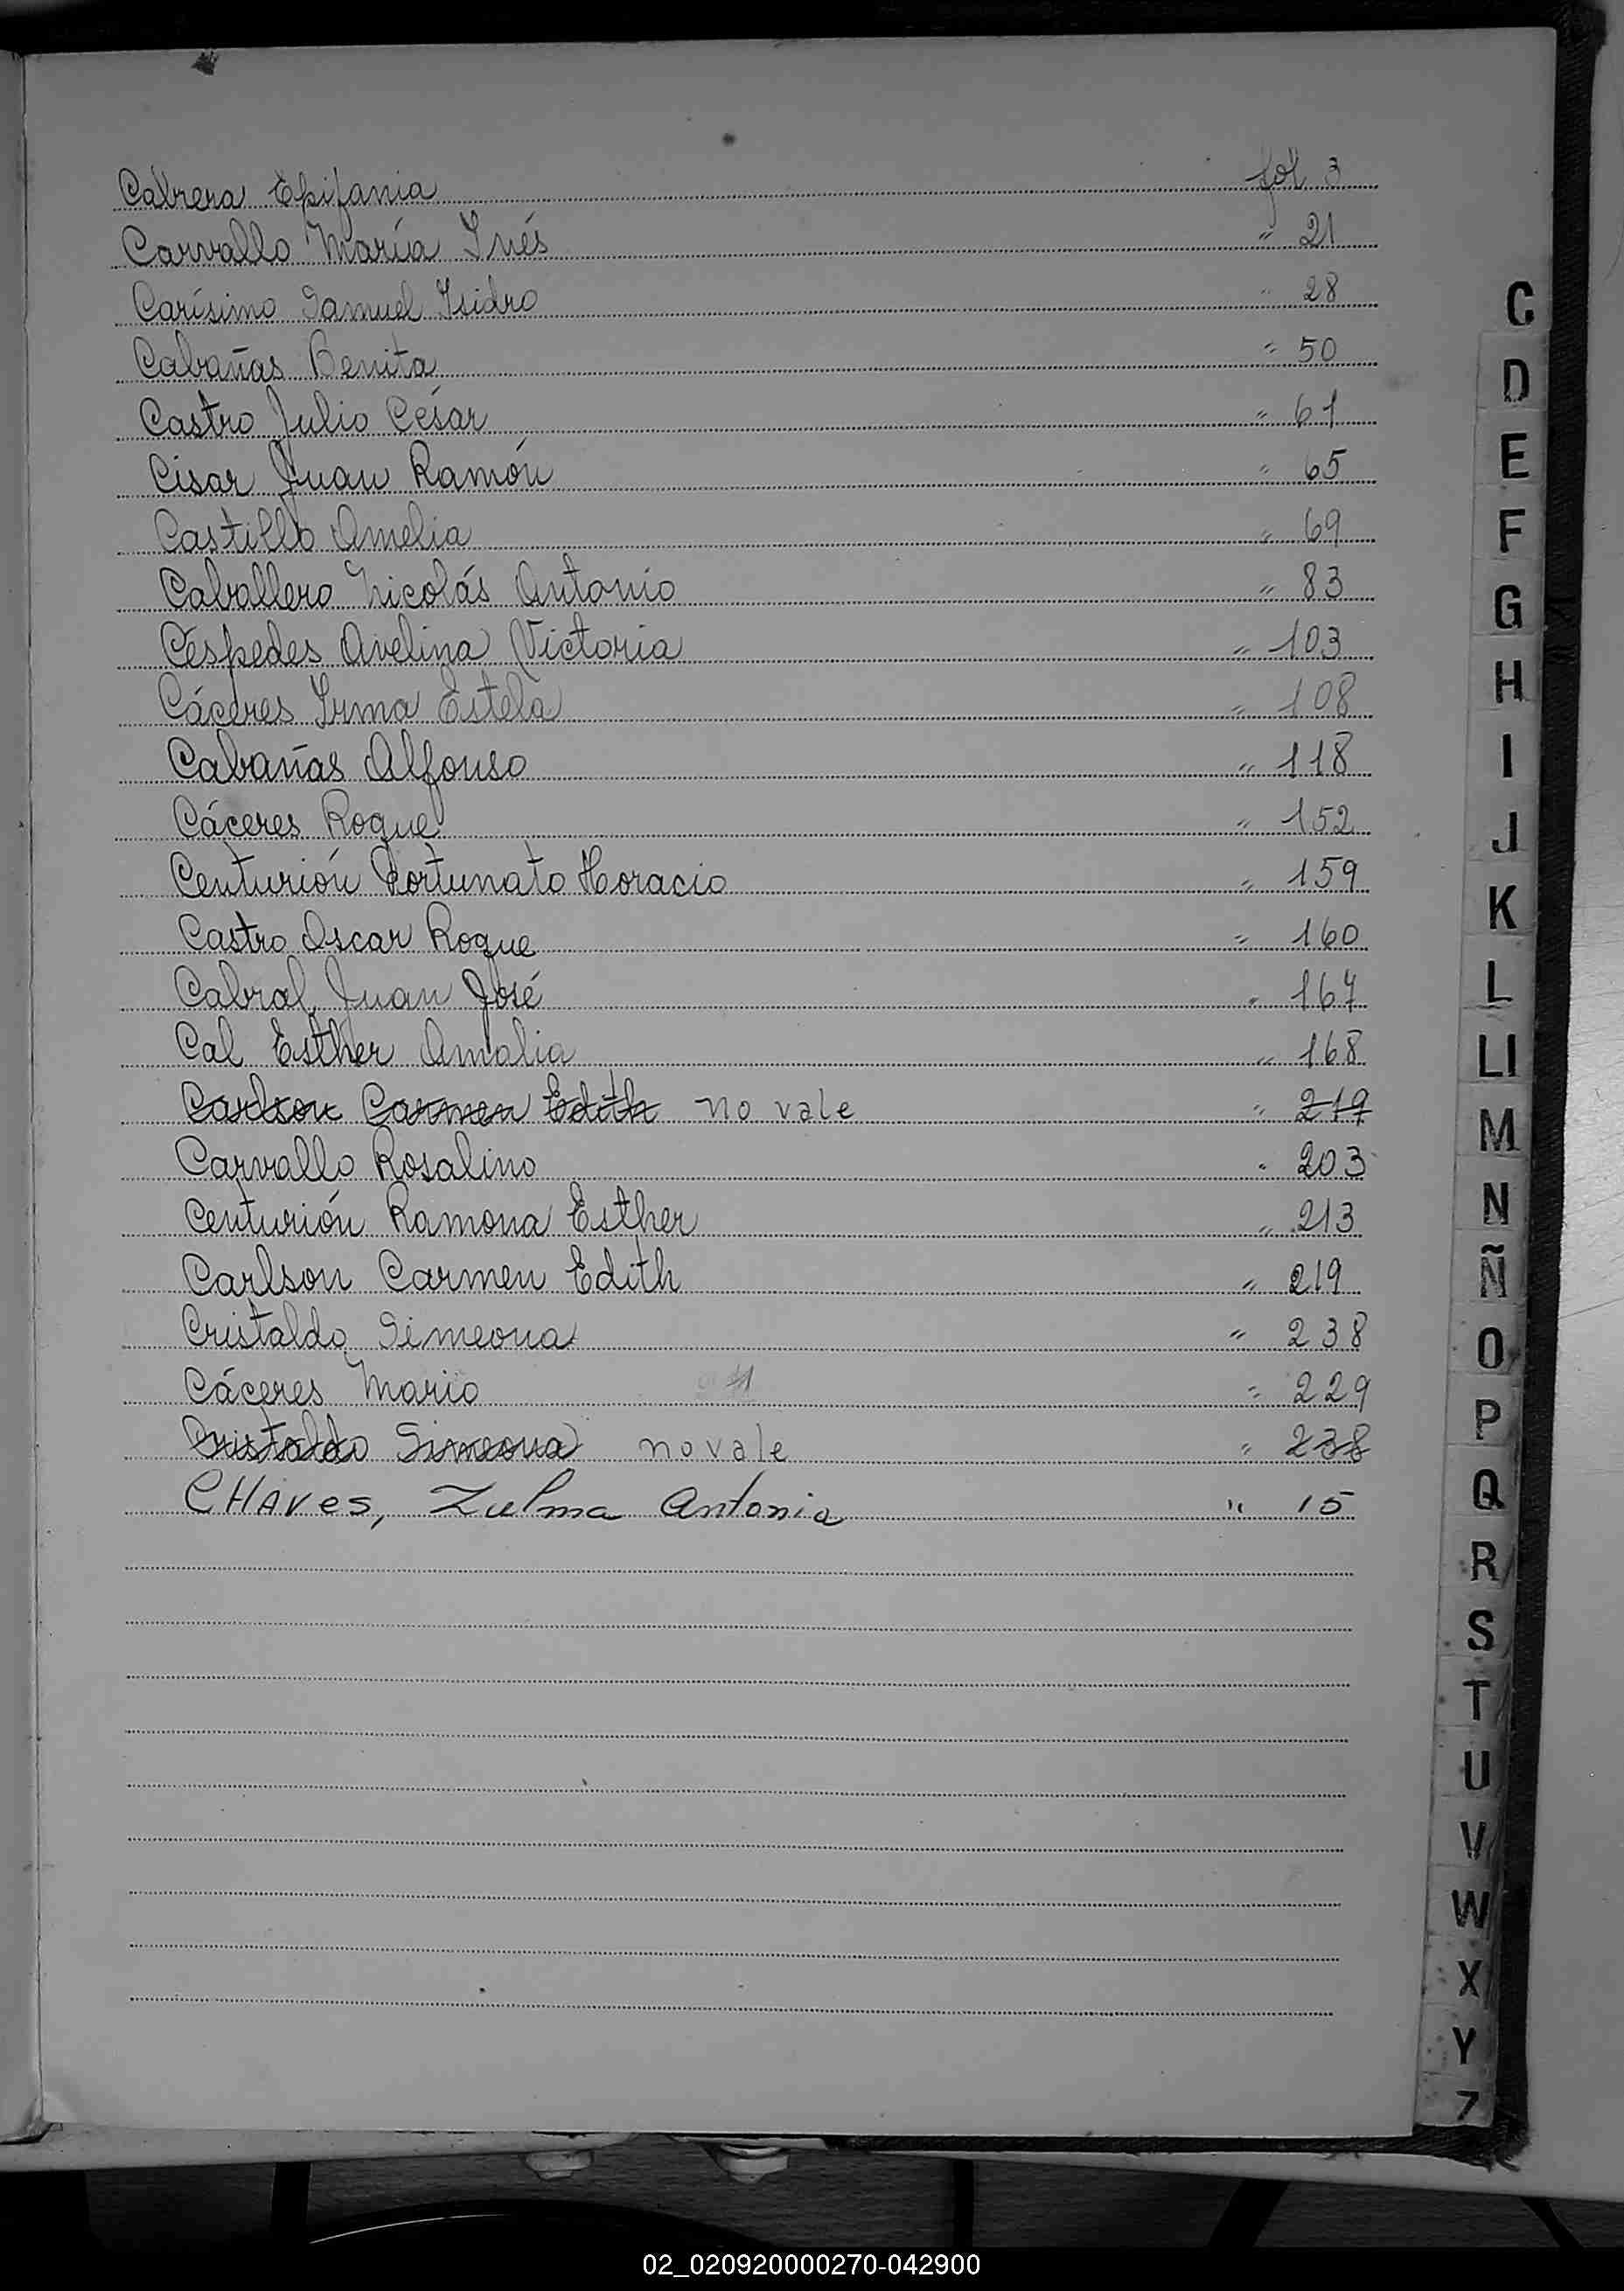 Cabrera Epifania fol 3
Carvallo María Inés " 21
Carísimo Samuel Isidro " 28
Cabañas Benita " 50
Castro Julio César " 61
Cisar Juan Ramón " 65
Castillo Amelia " 69
Caballero Nicolás Antonio " 83
Céspedes Avelina Victoria " 103
Cáceres Irma Estela " 108
Cabañas Alfonso " 118
Cáceres Roque " 152
Centurión Fortunato Horacio " 159
Castro Oscar Roque " 160
Cabral Juan José " 167
Cal Esther Amalia " 168
Carlson Carmen Edith no vale " 219
Carvallo Rosalino " 203
Centurión Ramona Esther " 213
Carlson Carmen Edith " 219
Cristaldo Simeona " 238
Cáceres Mario " 229
Cristaldo Simeona no vale " 238
CHAVes, Zulma Antonia " 15
C
D
E
F
G
H
I
J
K
L
Ll
M
N
Ñ
O
P
Q
R
S
T
U
V
W
X
Y
Z
02_020920000270-042900